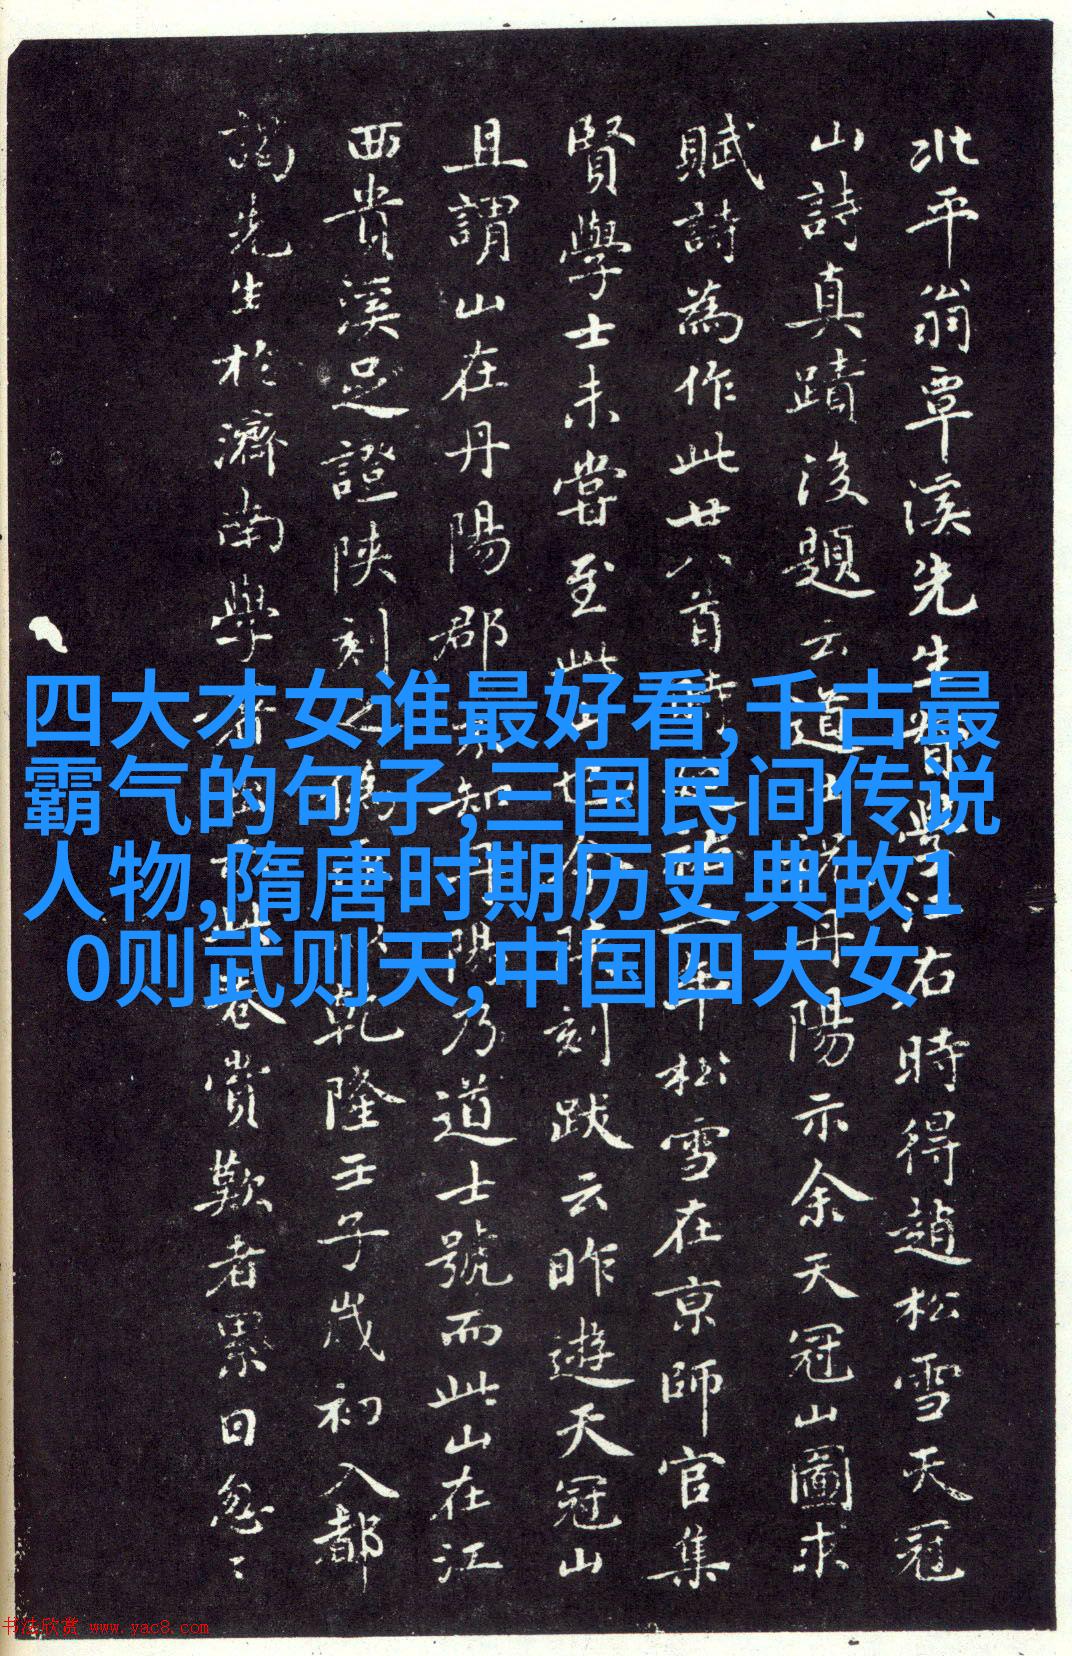 北平翁覃溪先生督學江右時得趙松雪天冠
山詩真蹟後題云道士 丹陽示余天冠山圖求
賦詩為作此廿八首 松雪在京師官集
賢學士未嘗至此山也 刻跋云昨遊天冠山
且謂山在丹陽郡 不知 陽乃道士號而此山在江
西貴溪足證陝刻之 乾隆壬子歲初入都
謁先生於濟南學 此卷賞歎者累日忽〻
四大才女谁最好看,千古最
霸气的句子,三国民间传说
人物,隋唐时期历史典故1
0则武则天,中国四大女
书法欣赏 www.yac8.com